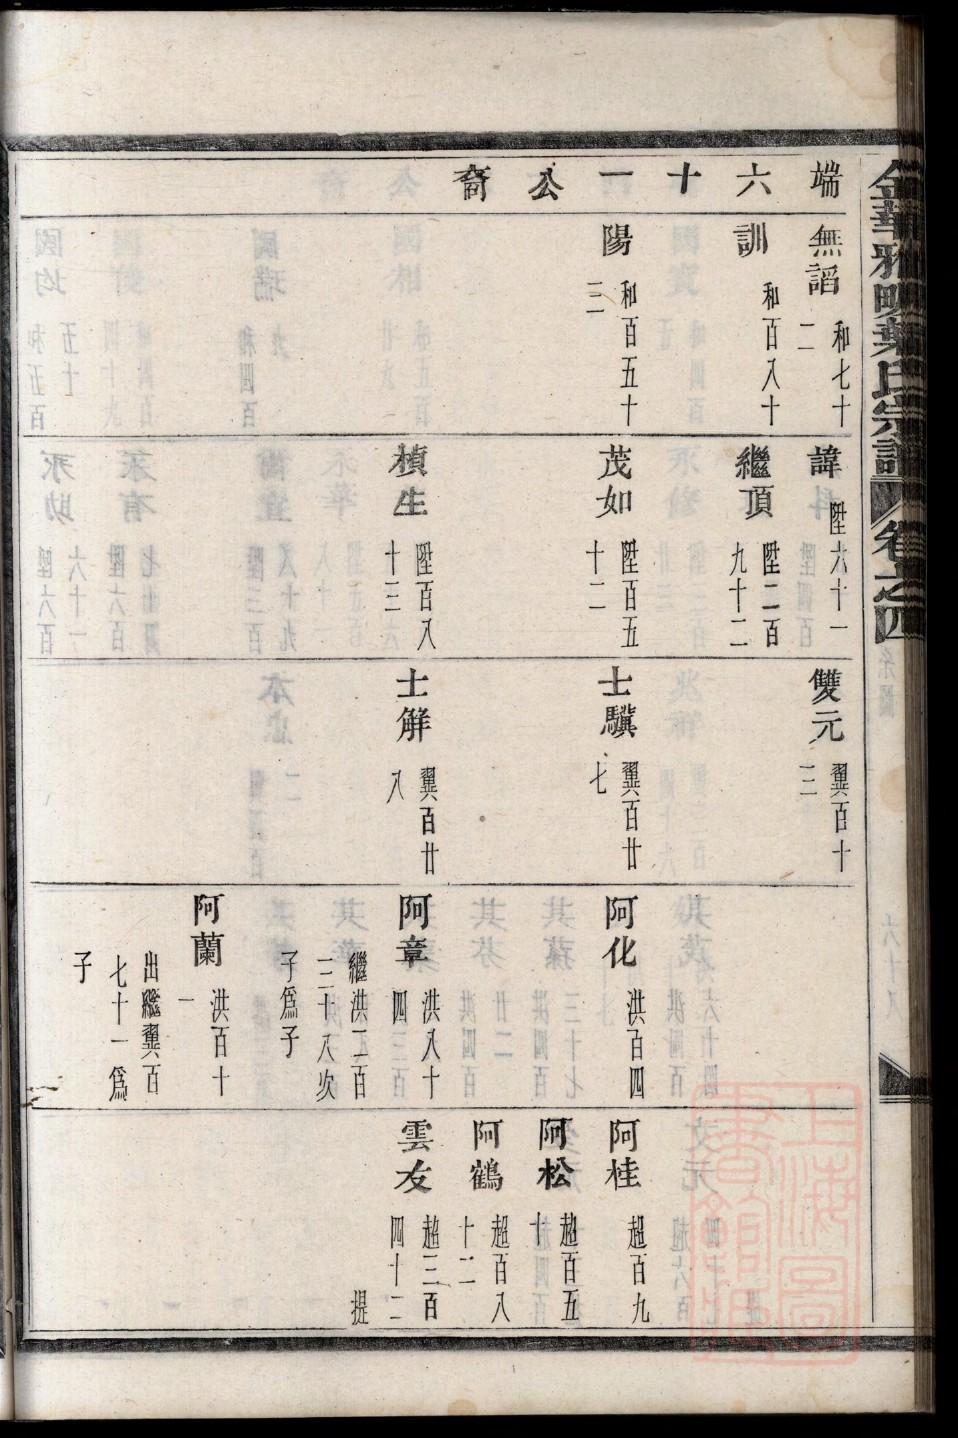 金華雅畈葉氏宗譜 卷之四
端六十一公裔
無謟 和七十二
訓 和百八十
陽 和百五十三
諱 陞六十一
繼頂 陞二百九十二
茂如 陞百五十二
楨生 陞百八十三
雙元 翼百十三
士驥 翼百廿七
士解 翼百廿八
阿化 洪百四
阿章 洪八十四
繼洪二百三十八次子爲子
阿蘭 洪百十一
出繼翼百七十一爲子
阿桂 超百九
阿松 超百五十
阿鶴 超百八十二
雲友 超三百四十二
提
上海圖書館藏